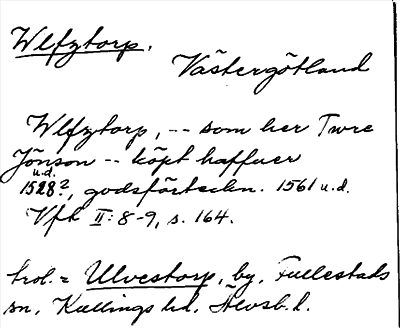 Wlfztorp.
Västergötland
Wlfztorp, -- som her Twre
Jönson -- köpt haffuer
u.d.
1528?, godsförteckn. 1561 u.d.
Vfh II: 8-9, s. 164.
trol. = Ulvestorp, by, Fullestads
sn, Kullings hd, Älvsb. l.